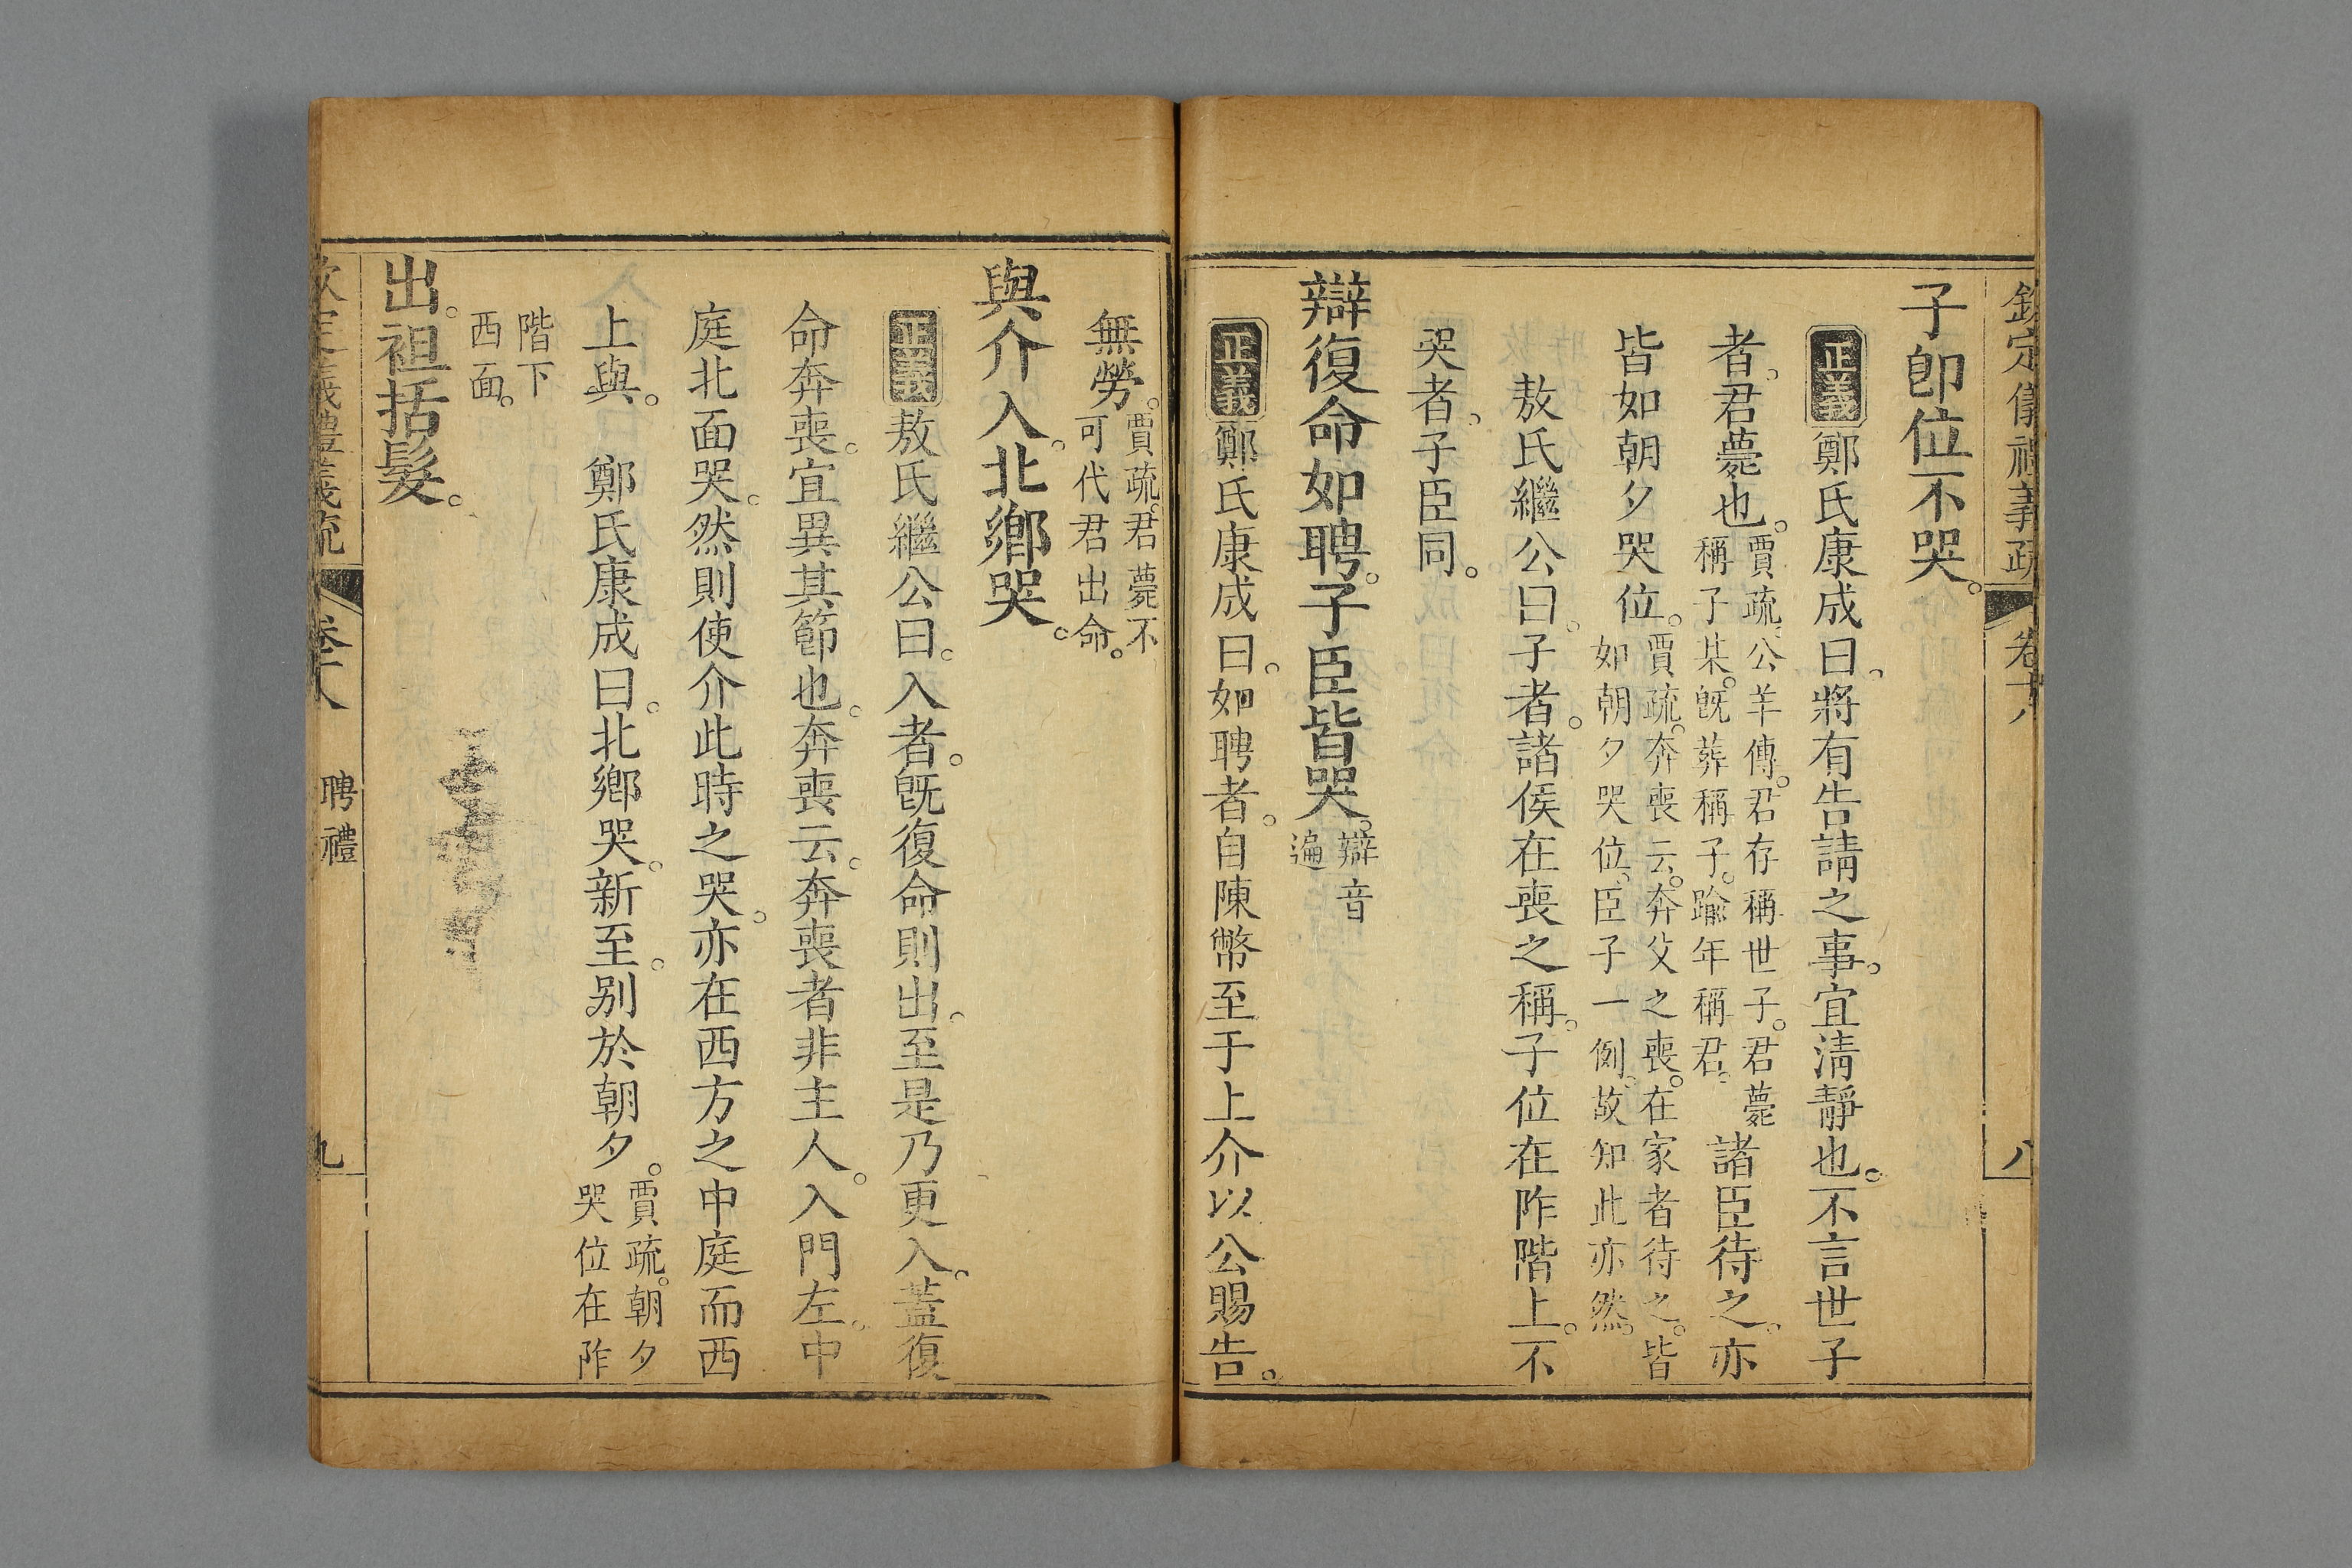 欽定儀禮義疏 卷十八 八
子卽位不哭。
正義 鄭氏康成曰。將有告請之事。宜淸靜也。不言世子
者。君薨也。賈疏。公羊傳。君存稱世子。君薨稱子某。旣葬稱子。踰年稱君。 諸臣待之。亦
皆如朝夕哭位。賈疏。奔喪云。奔父之喪。在家者待之。皆如朝夕哭位。臣子一例。故知此亦然。
敖氏繼公曰。子者。諸侯在喪之稱。子位在阼階上。不
哭者。子臣同。
辯復命如聘。子臣皆哭。辯音遍
正義 鄭氏康成曰。如聘者。自陳幣至于上介以公賜告。
無勞。賈疏。君薨不可代君出命。
與介入。北鄉哭。
正義 敖氏繼公曰。入者。旣復命則出。至是乃更入。蓋復
命奔喪。宜異其節也。奔喪云。奔喪者非主人。入門左。中
庭北面哭。然則使介此時之哭。亦在西方之中庭而西
上與。 鄭氏康成曰。北鄉哭。新至。别於朝夕。賈疏。朝夕哭位在阼
階下西面。
出。袒括髮。
欽定儀禮義疏 卷十八 聘禮 九